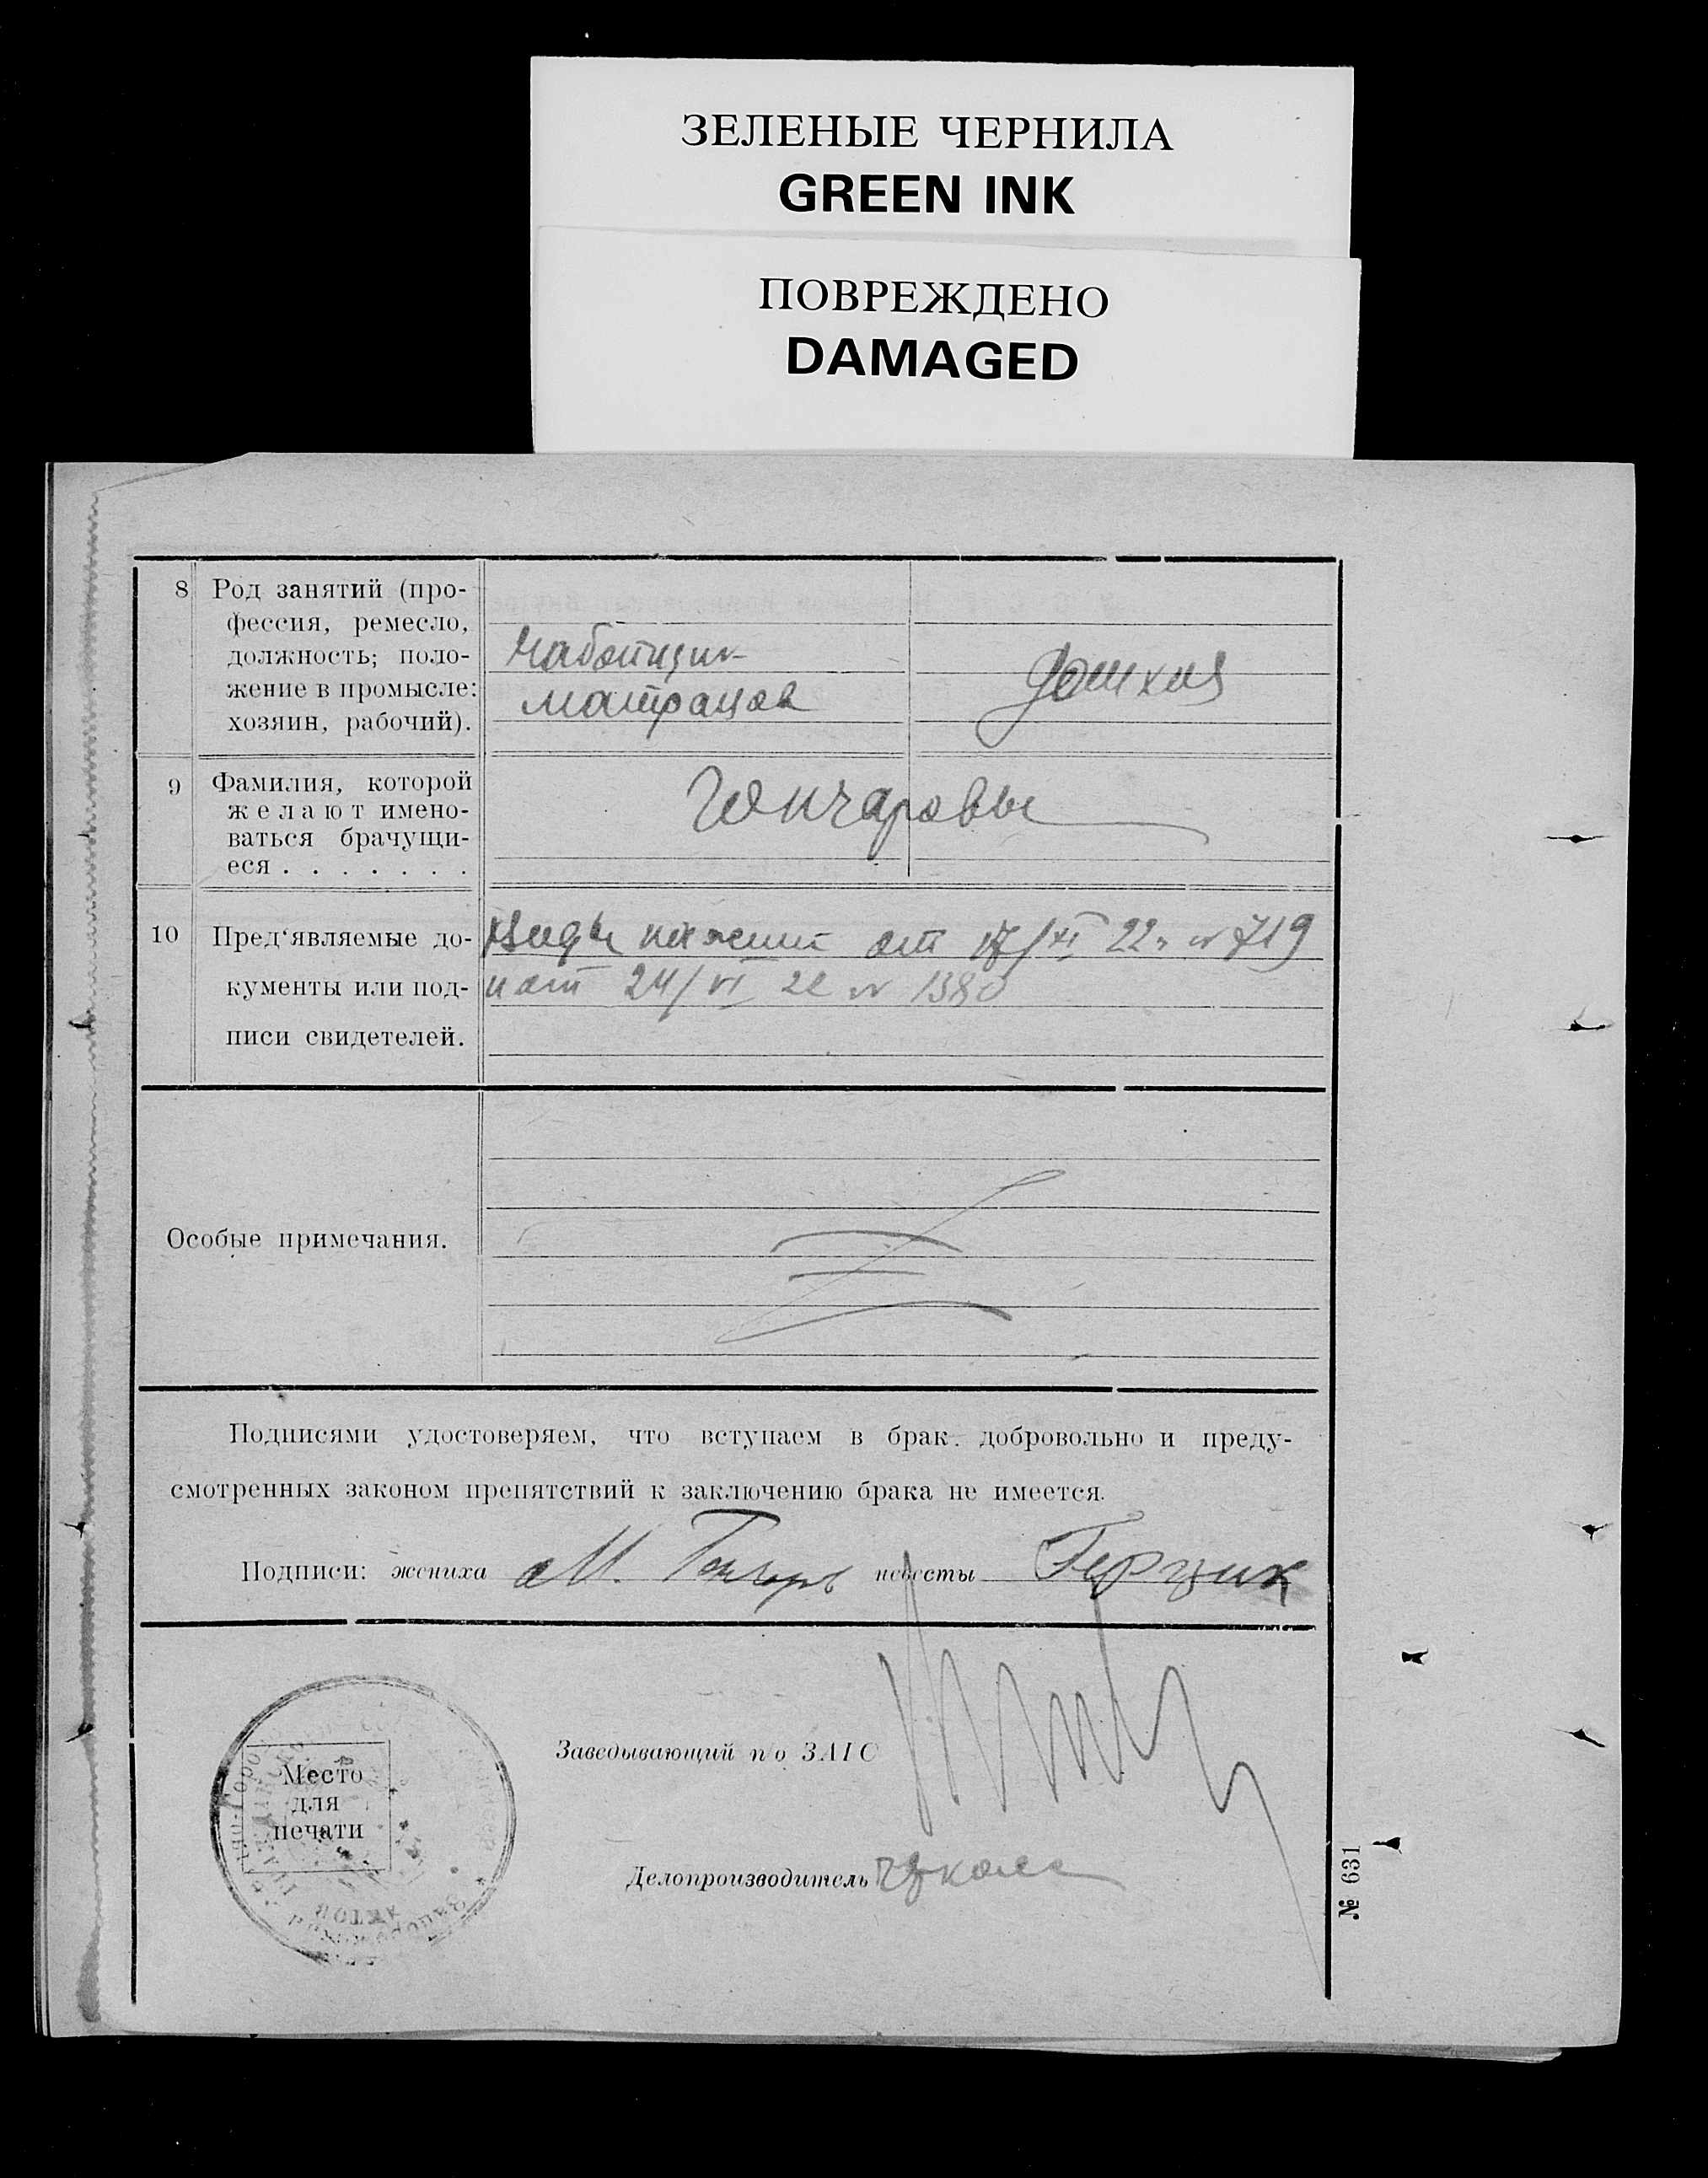 ЗЕЛЕНЫЕ ЧЕРНИЛА
GREEN INK
ПОВРЕЖДЕНО
DAMAGED
8 Род занятий (про-
фессия, ремесло,
должность; поло-
жение в промысле:
хозяин, рабочий).
Набойщик
матрацов
9 Фамилия, которой
желают имено-
ваться брачущи-
еся . . . . . . .
Гончаровы
10 Пред‘являемые до-
кументы или под-
писи свидетелей.
Виды на жит от 17/XI 22 г № 719
и от 24/VI 22 № 1380
Особые примечания.
Подписями удостоверяем, что вступаем в брак. добровольно и преду-
смотренных законом препятствий к заключению брака не имеется.
Подписи: жениха М. Гончаръ невесты Герцик
Заведывающий по ЗАГС
Место
для
печати
Делопроизводитель
№ 631